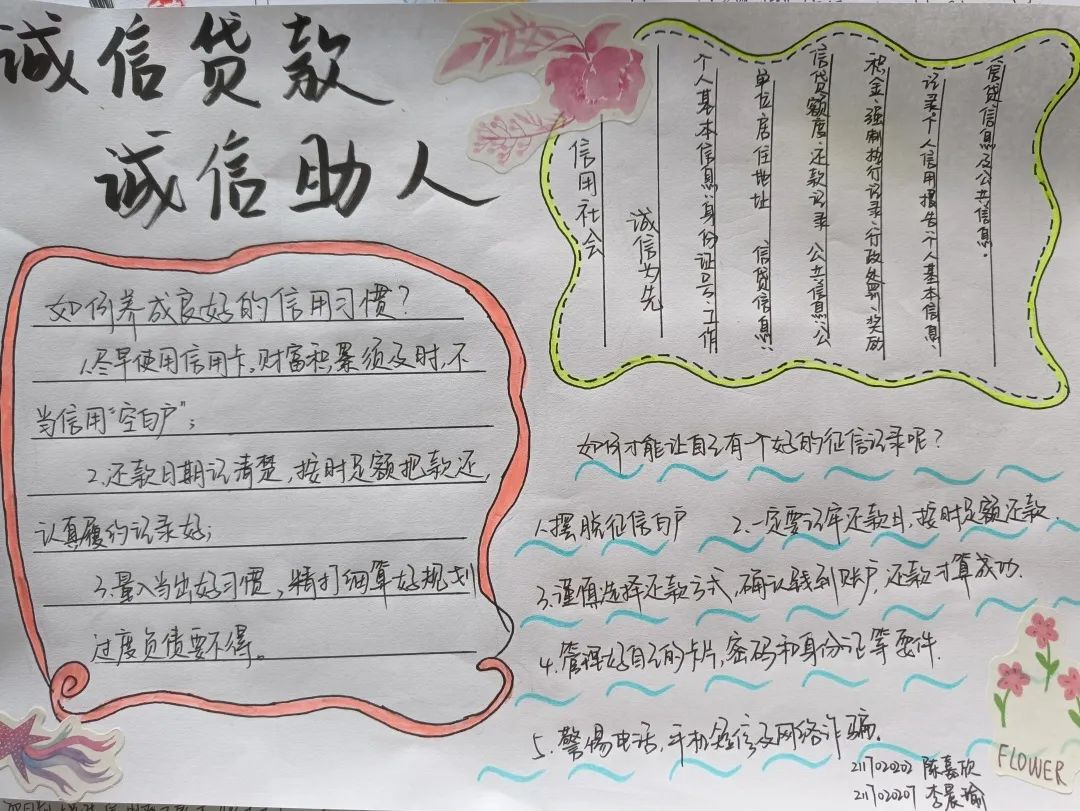 诚信贷款
诚信助人
如何养成良好的信用习惯?
1.尽早使用信用卡。财富积累须及时,不
当信用“空白户”;
2.还款日期记清楚,按时足额把款还,
认真履约记录好;
3.量入当出好习惯,精打细算好规划
过度负债要不得。
信用社会
诚信为先
个人基本信息:身份证号、工作
单位居住地址 信贷信息:
信贷额度、还款记录 公共信息:公
积金、强制执行记录、行政处罚、奖励
记录个人信用报告:个人基本信息、
信贷信息及公共信息。
如何才能让自己有一个好的征信记录呢?
1.摆脱征信白户 2.一定要记牢还款日,按时足额还款.
3.谨慎选择还款方式,确认钱到账户,还款才算成功.
4.管理好自己的卡片,密码和身份证等要件.
5.警惕电话,手机短信及网络诈骗.
FLOWER